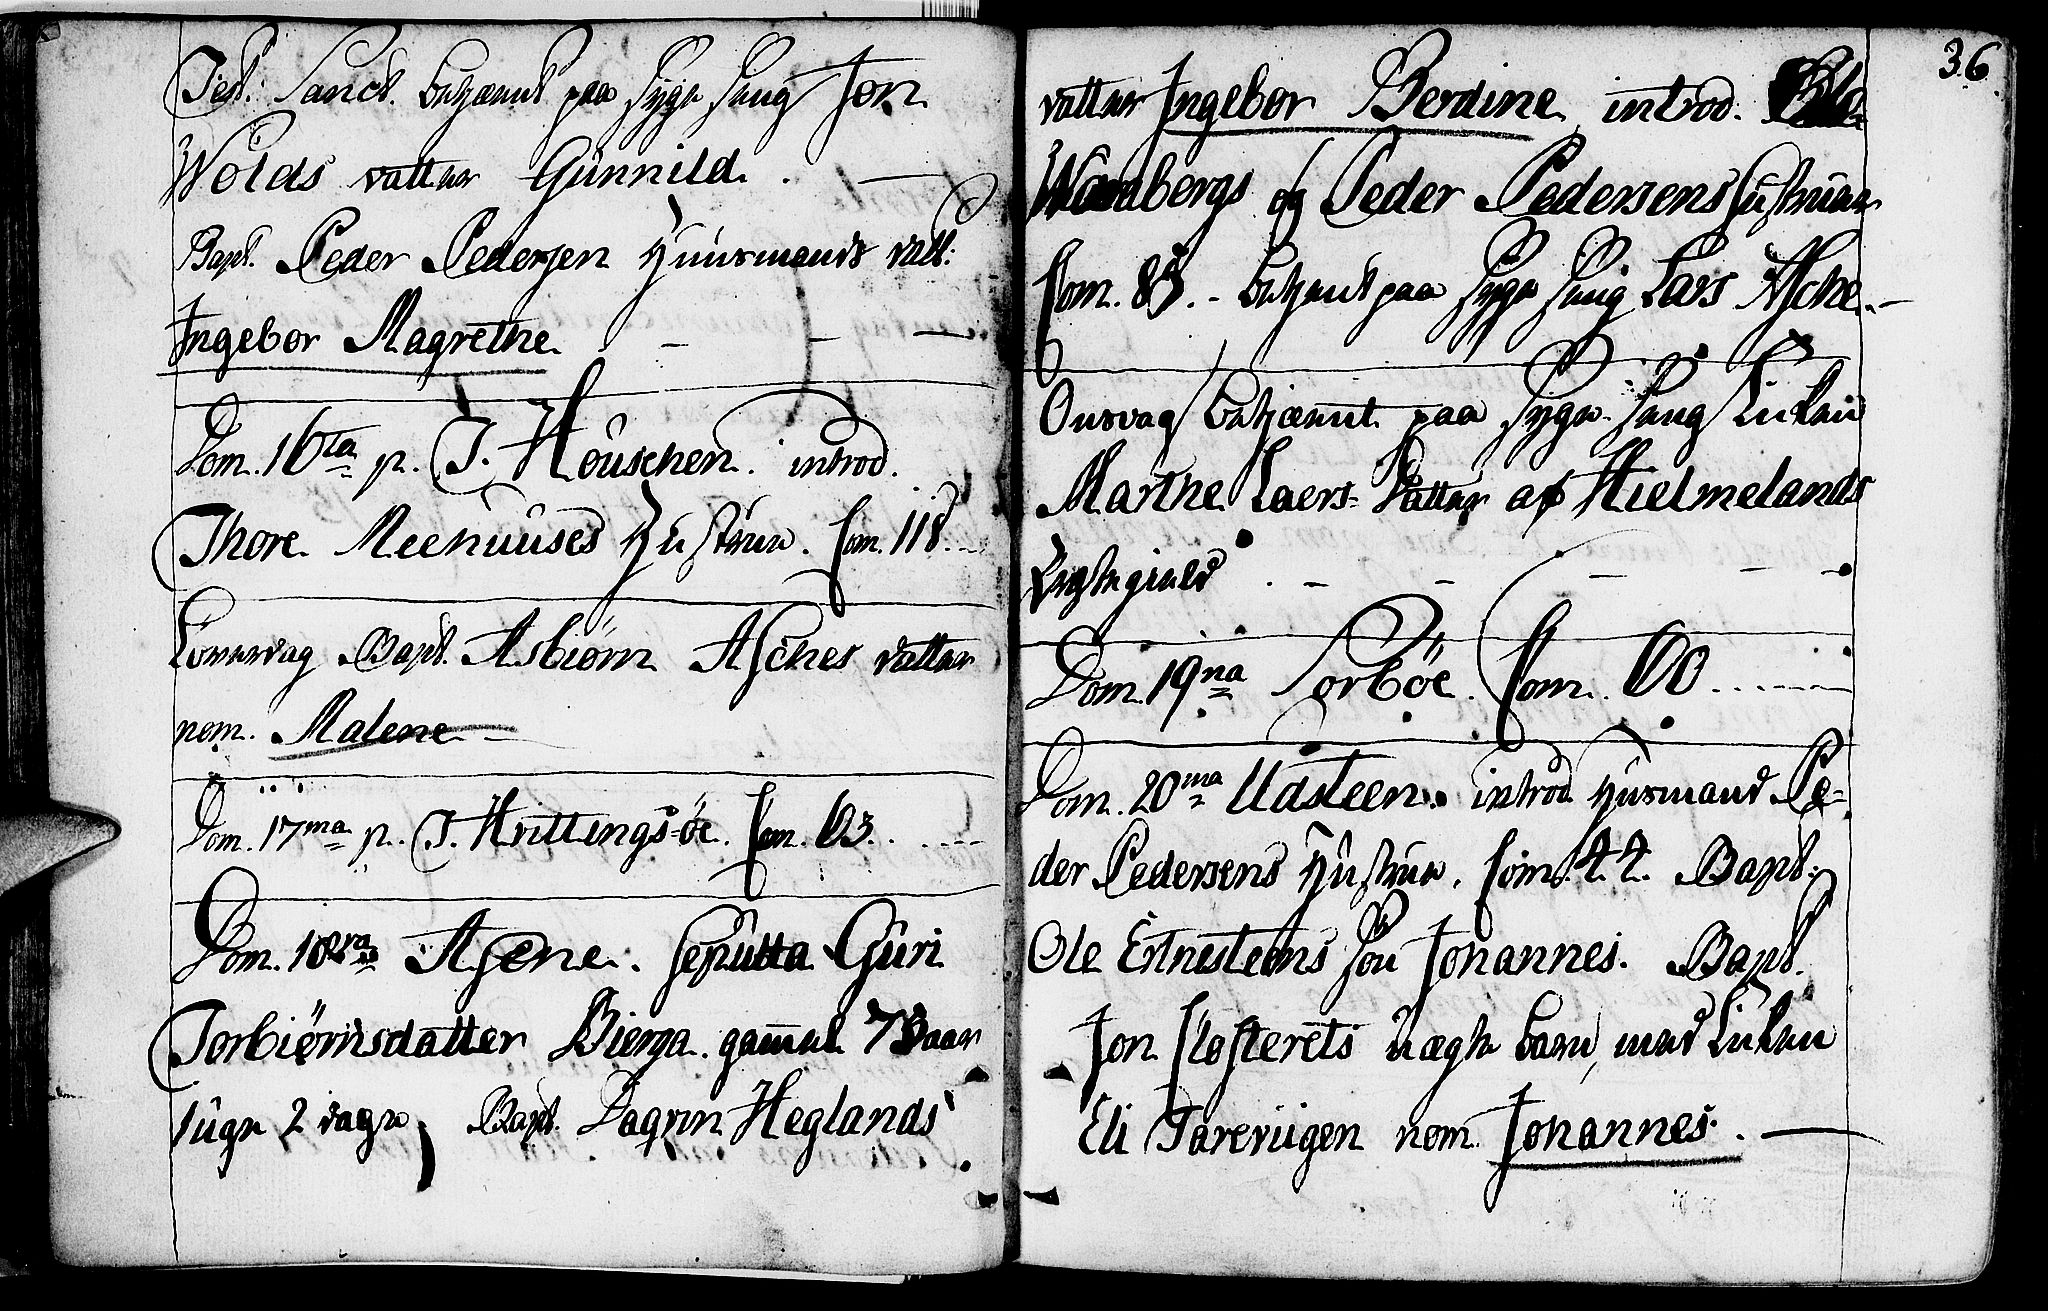 Fest. Sanct. betjænt paa Syge Seng Jon
Wolds datter Gunnild. —
Bapt. Peder Pedersen Huusmands datt:
Ingebor Magrethe — — —
Dom. 16ta p. T. Houschen. introd.
Thore Meehuuses Hustrue. Com. 118. –
Löverdag Bapt. Asbiørn Asches datter
nom. Malene —
Dom. 17ma p. T. Hvittings-öe. Com. 63.
Dom. 18va Aschene. Sepulta Guri
Torbiørnsdatter Bierga. gammel 78 aar
2 dage, Bapt. Dagrun Heglands
36
datter Ingebor Berdine, introd.
og Peder Pedersens Hustruer
Com. 85. - betjent paa Syge Seng Lars Asche. -
Onsdag betjænt paa Syge Seng Enken
Marthe Laers-Datter af Hielmelands
Præstegield . – – – –
Dom. 19na Sorböe. Com. 60
Dom. 20ma Udsteen. introd Huusmand Pe-
der Pedersens Hustrue. Com. 44. Bapt.
Ole Ertnesteens Sön Johannes. Bapt.
Jon Closterets uægte barn, med Enken
Eli Tarevigen nom. Johannes. —